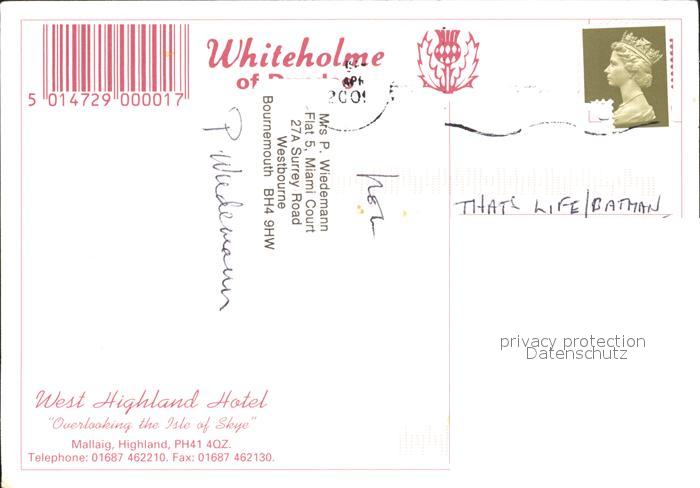 Whiteholme
of
5 014729 000017
APR
2001
Mrs P. Wiedemann
Flat 5, Miami Court
27A Surrey Road
Westbourne
Bournemouth BH4 9HW
P. Wiedemann
THAT'S LIFE/BATMAN
privacy protection
Datenschutz
West Highland Hotel
"Overlooking the Isle of Skye"
Mallaig, Highland, PH41 4QZ.
Telephone: 01687 462210. Fax: 01687 462130.